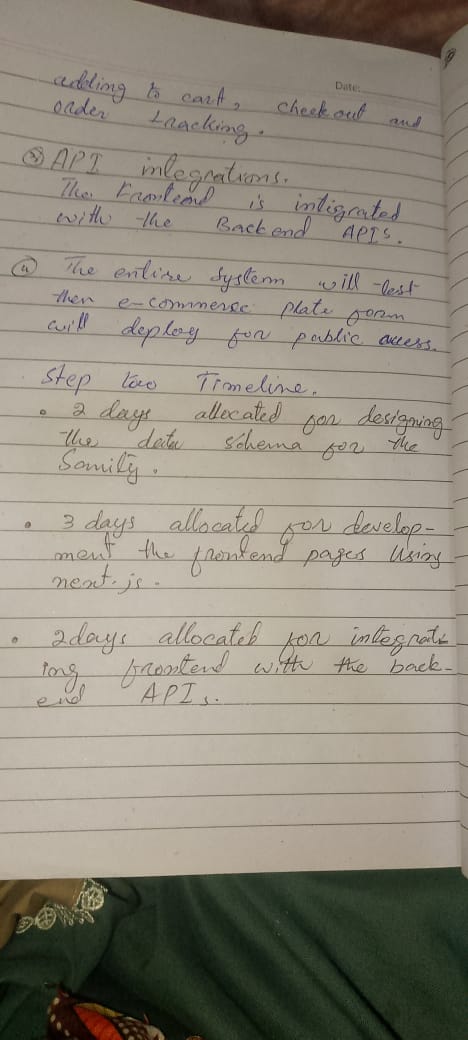 Date:
adding to cart, checkout and
order tracking.
③ API integrations.
The Frontend is intigrated
with the Backend APIs.
④ The entire system will test
then e-commerce plate form
will deploy for public access.
Step two Timeline.
• 2 days allocated for designing
the data schema for the
Sanity.
• 3 days allocated for develop-
ment the frontend pages Using
next.js.
• 2days allocated for integrat-
ing frontend with the back-
end APIs.